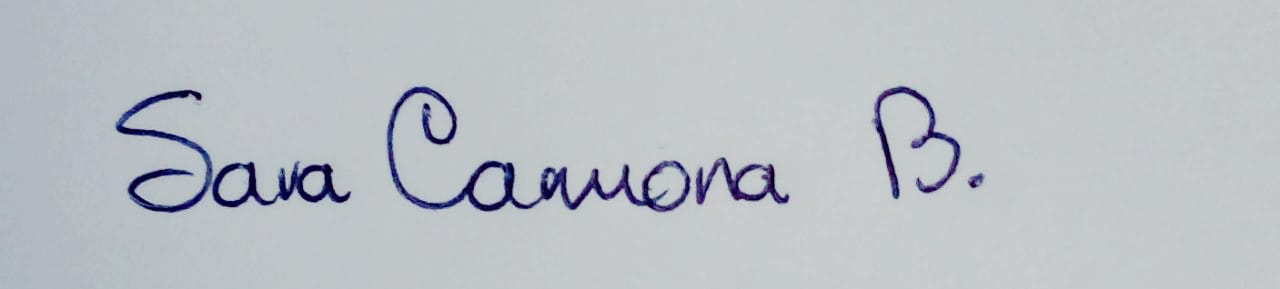 Sara Carmona B.